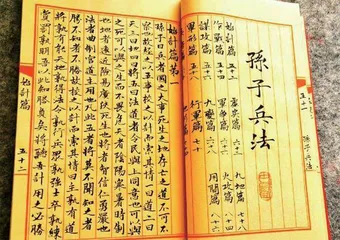 孫子兵法
始計篇
謀攻篇
行軍篇
九地篇
火攻篇
用間篇
始計篇第一
孫子曰兵者國之大事死生之地存亡之道不可不
察也故經之以五事校之以計而索其情一曰道二曰
天三曰地四曰將五曰法道者令民與上同意也可與
之死可以與之生而不畏危天者陰陽寒暑時制
也地者遠近險易廣狹死生也將者智信仁勇嚴也
法者曲制官道主用也凡此五者將莫不聞知之者
勝不知者不勝故校之以計而索其情曰主孰有道
將孰有能天地孰得法令孰行兵眾孰強士卒孰練
賞罰孰明吾以此知勝負矣將聽吾計用之必勝
始計篇 五十二